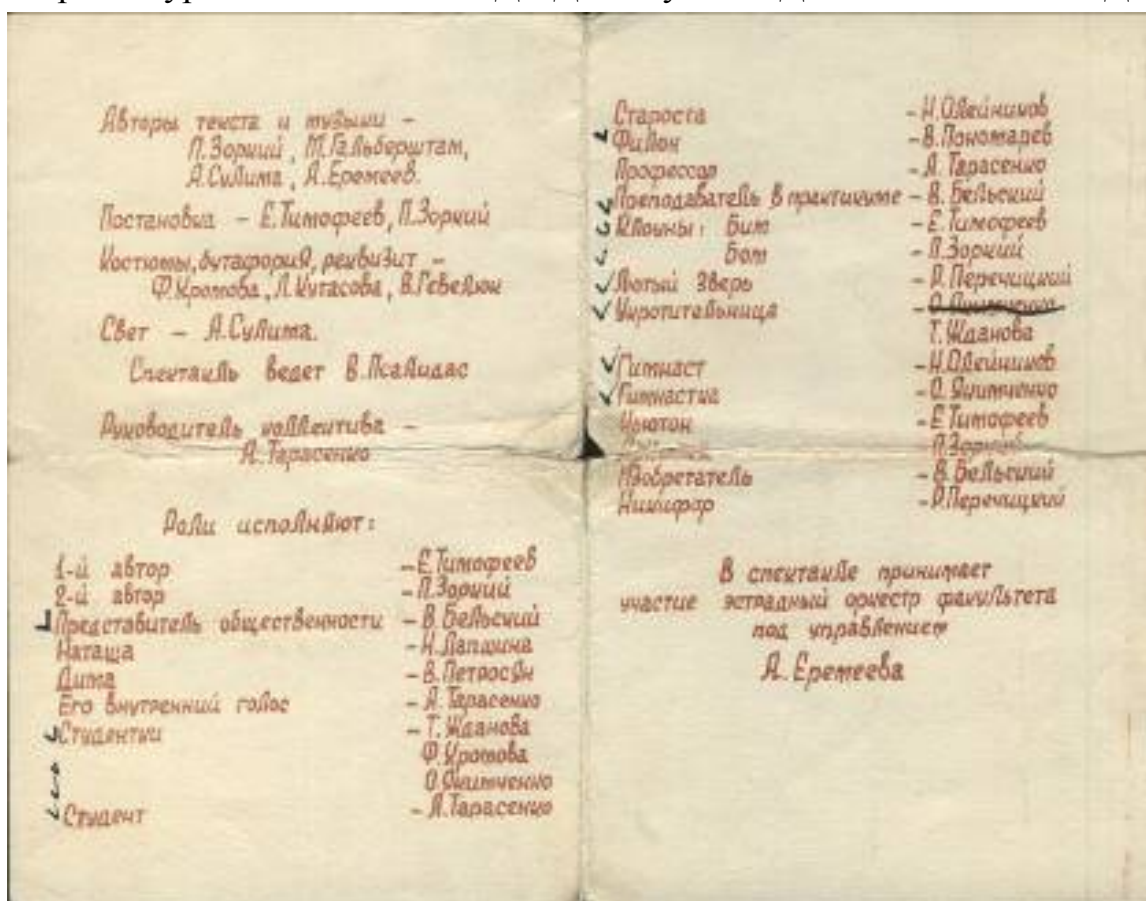 Авторы текста и музыки –
П.Зоркий, М.Гальберштам,
А.Сулима, А.Еремеев.
Постановка – Е.Тимофеев, П.Зоркий
Костюмы, бутафория, реквизит –
Ф.Кротова, Л.Кутасова, В.Гевелюк
Свет – А.Сулима.
Спектакль ведет В.Псалидас
Руководитель коллектива –
А.Тарасенко
Роли исполняют:
1-й автор – Е.Тимофеев
2-й автор – П.Зоркий
Представитель общественности – В.Бельский
Наташа – Н.Лапшина
Дима – В.Петросян
Его внутренний голос – А.Тарасенко
Студентки – Т.Жданова
Ф.Кротова
О.Якимченко
Студент – А.Тарасенко
Староста – Н.Олейников
Филон – В.Пономарев
Профессор – А.Тарасенко
Преподаватель в практикуме – В.Бельский
Клоуны: Бим – Е.Тимофеев
Бом – П.Зоркий
Лютый зверь – Р.Перечицкий
Укротительница –
Т.Жданова
Гимнаст – Н.Олейников
Гимнастка – О.Якимченко
Ньютон – Е.Тимофеев
П.Зоркий
Изобретатель – В.Бельский
Никифор – Р.Перечицкий
В спектакле принимает
участие эстрадный оркестр факультета
под управлением
А.Еремеева